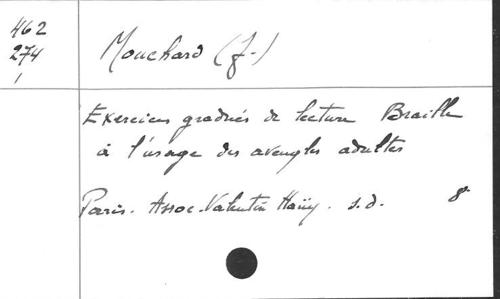 462
274
1
Mouchard (J.)
Exercices gradués de lecture Braille
à l'usage des aveugles adultes
Paris. Assoc. Valentin Haüy. s.d. 8°